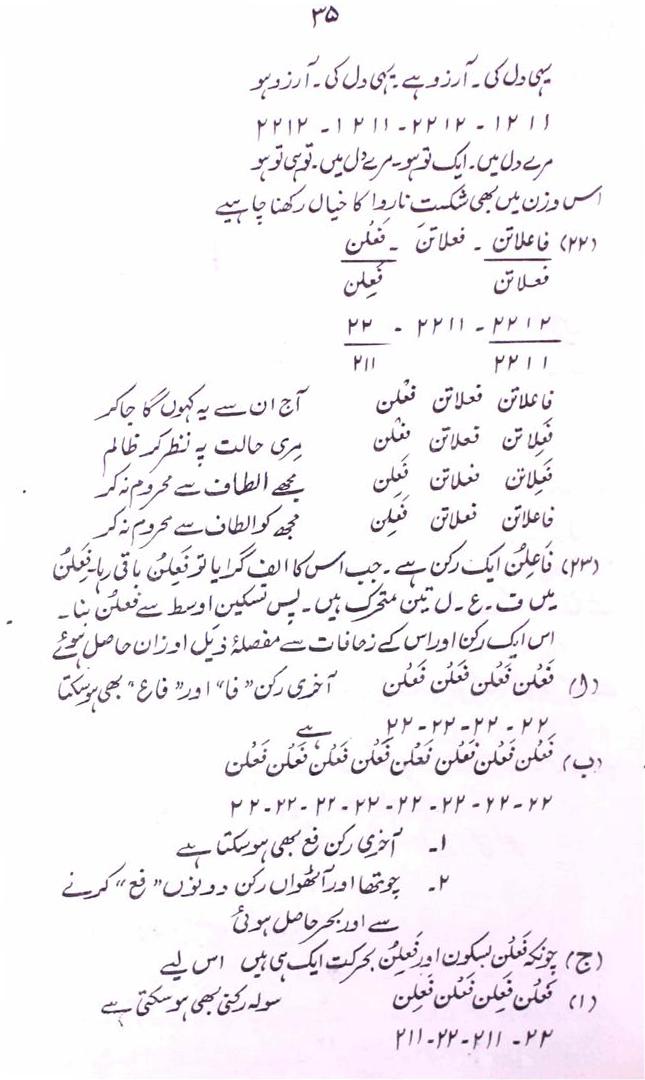 ۳۵
یہی دل کی ۔ آرزو ہے ۔ یہی دل کی ۔ آرزو ہو
۱۲۱۱ - ۲۲۱۲ - ۱۲۱۱ - ۲۲۱۲
مرے دل میں ۔ ایک تو ہو ۔ مرے دل میں ۔ تو ہی تو ہو
اس وزن میں بھی شکست ناروا کا خیال رکھنا چاہیے
(۲۲) فاعلاتن ۔ فعلاتن ۔ فَعْلن
فعلاتن فَعِلن
۲۲۱۲ - ۲۲۱۱ - ۲۲
۲۲۱۱ ۲۱۱
فاعلاتن فعلاتن فعْلن آج ان سے یہ کہوں گا جا کر
فَعِلاتن فعلاتن فعْلن مری حالت پہ نظر کر ظالم
فَعِلاتن فعلاتن فَعِلن مجھے الطاف سے محروم نہ کر
فاعلاتن فعلاتن فَعِلن مجھ کو الطاف سے محروم نہ کر
(۲۳) فَاعِلُن ایک رکن ہے ۔ جب اس کا الف گرایا تو فَعِلُن باقی رہا ۔ فَعِلُن
میں ف ۔ ع ۔ ل تین متحرک ہیں ۔ پس تسکین اوسط سے فعْلن بنا ۔
اس ایک رکن اور اس کے زحافات سے مفصلۂ ذیل اوزان حاصل ہوئے
(ا) فَعْلُن فَعْلُن فَعْلُن فَعْلُن آخری رکن "فا" اور "فاع" بھی ہو سکتا
۲۲ - ۲۲ - ۲۲ - ۲۲ ہے
(ب) فَعْلُن فَعْلُن فَعْلُن فَعْلُن فَعْلُن فَعْلُن فَعْلُن فَعْلُن
۲۲ - ۲۲ - ۲۲ - ۲۲ - ۲۲ - ۲۲ - ۲۲ - ۲۲
۱۔ آخری رکن فع بھی ہو سکتا ہے
۲۔ چوتھا اور آٹھواں رکن دونوں "فع" کرنے
سے اور بحر حاصل ہوئی
(ج) چونکہ فَعْلُن بسکون اور فَعِلُن بحرکت ایک ہی ہیں اس لیے
(۱) فَعْلُن فَعِلن فَعْلن فَعِلن سولہ رکنی بھی ہو سکتی ہے
۲۲ - ۲۱۱ - ۲۲ - ۲۱۱